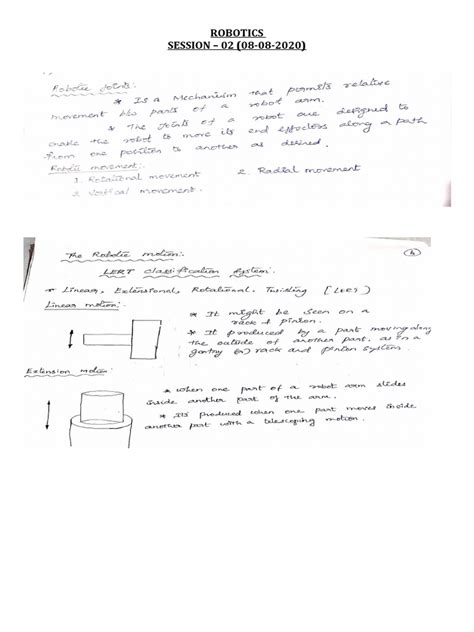 ROBOTICS
SESSION – 02 (08-08-2020)
Robotic Joints:
* Is a Mechanism that permits relative
movement b/w parts of a robot arm.
* The Joints of a robot are designed to
enable the robot to move its end effectors along a path
from one position to another as desired.
movement:
1. Rotational movement
2. Radial movement
3. Vertical movement.
4
The Robotic motion:
LERT Classification System:
* Linear, Extensional, Rotational, Twisting
Linear motion:
* It might be seen on a
rack & pinion.
* It produced by a part moving along
the outside of another part, as in a
gantry (or) rack and pinion system.
Extension motion:
* when one part of a robot arm slides
inside another part of the arm.
* Its produced when one part moves inside
another part with a telescoping motion.